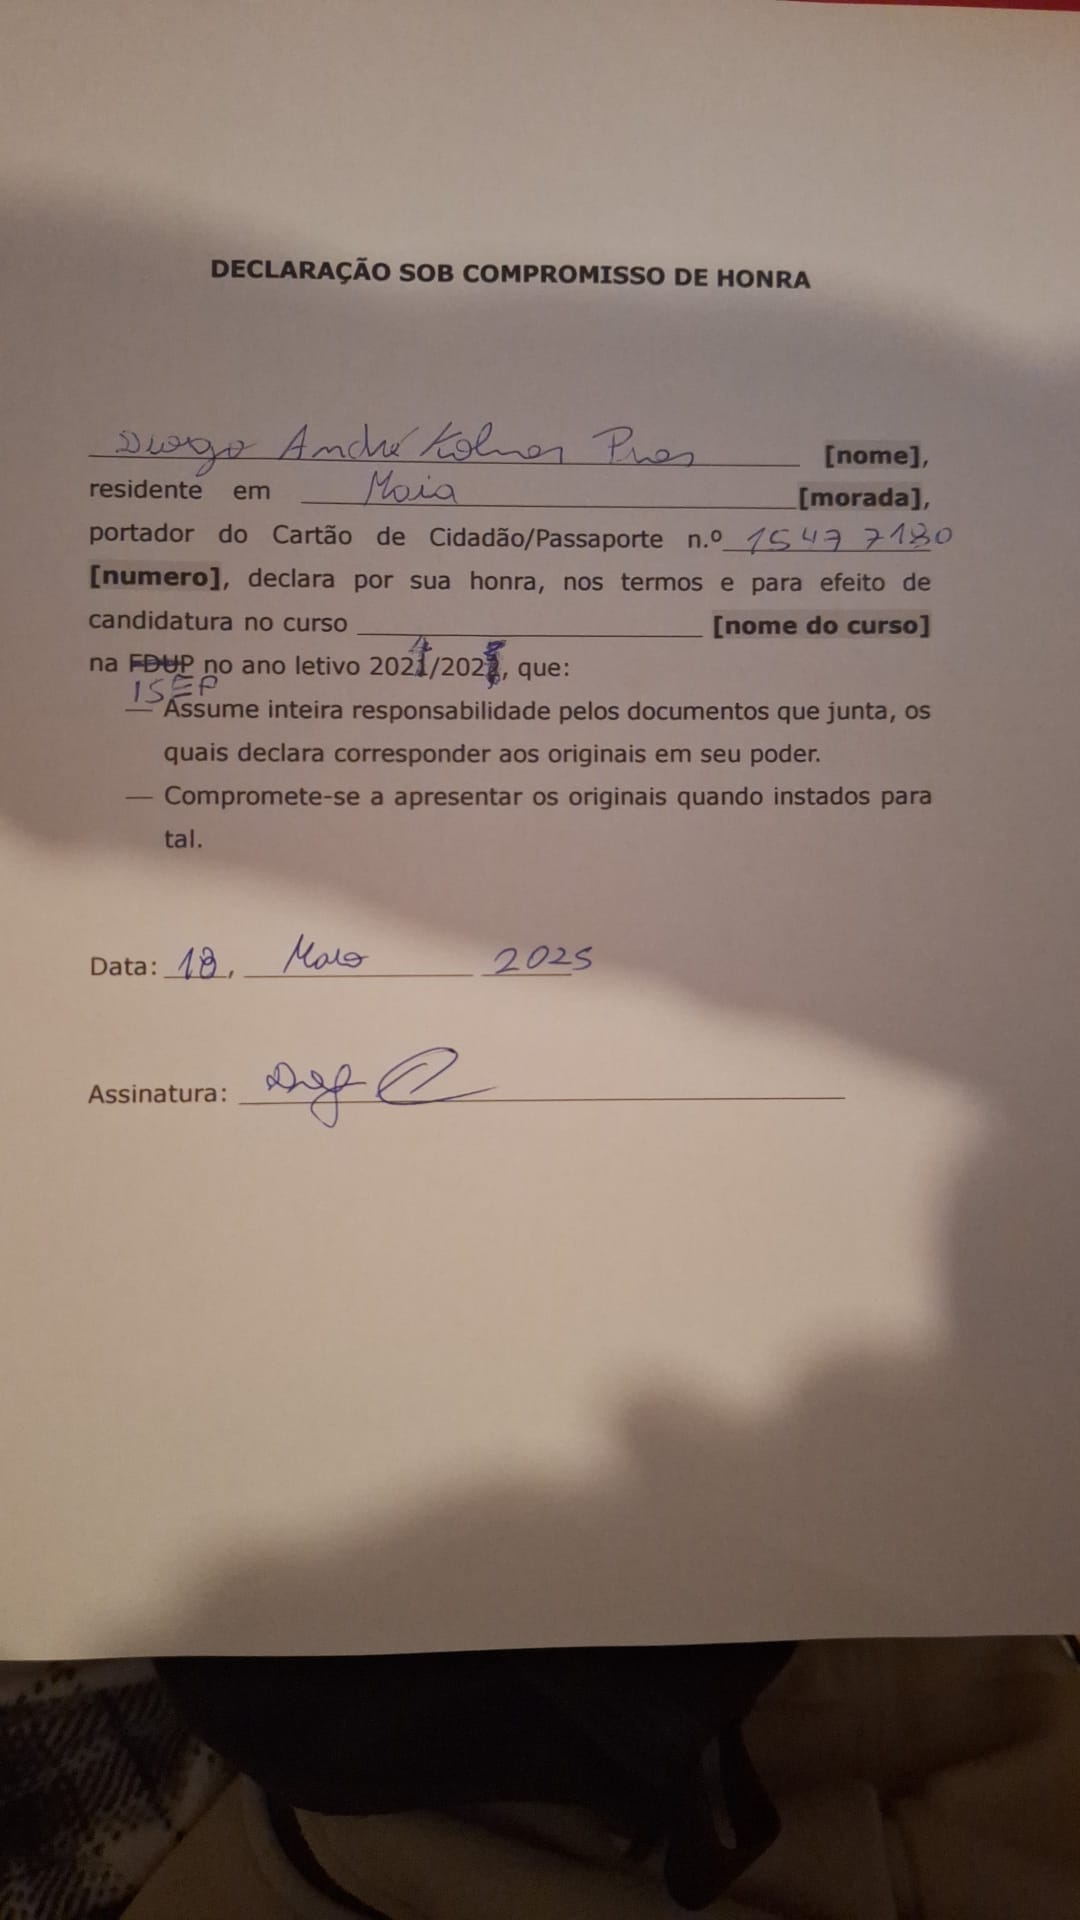 DECLARAÇÃO SOB COMPROMISSO DE HONRA
Diogo André [nome],
residente em Maia [morada],
portador do Cartão de Cidadão/Passaporte n.º 1547 7180
[numero], declara por sua honra, nos termos e para efeito de
candidatura no curso [nome do curso]
na FDUP no ano letivo 202/202, que:
ISEP
— Assume inteira responsabilidade pelos documentos que junta, os
quais declara corresponder aos originais em seu poder.
— Compromete-se a apresentar os originais quando instados para
tal.
Data: 18, Maio 2025
Assinatura: